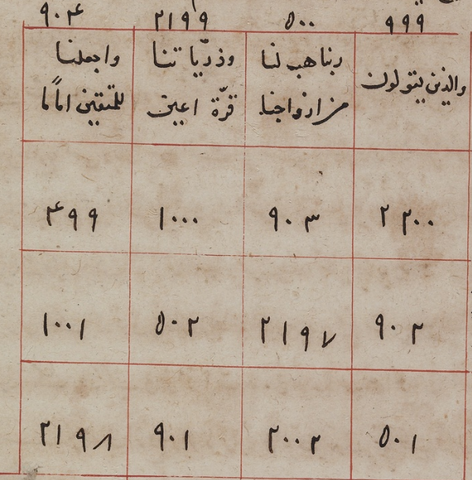 ٩٩٩ ٥٠٠ ٢١٩٩ ٩٠٤
والذين يقولون
ربنا هب لنا
من ازواجنا
وذرّياتنا
قرّة اعين
واجعلنا
للمتقين امامًا
٢٢٠٠ ٩٠٣ ١٠٠٠ ٤٩٩
٩٠٢ ٢١٩٧ ٥٠٢ ١٠٠١
٥٠١ ٢٠٠٢ ٩٠١ ٢١٩٨